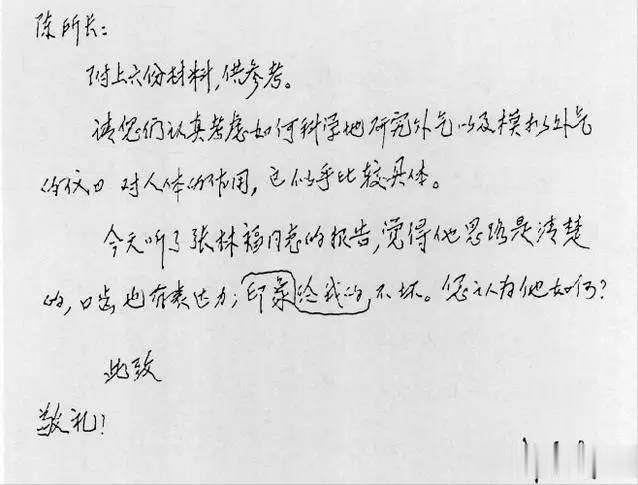 陈所长：
附上六份材料，供参考。
请您们认真考虑如何科学地研究外气以及模拟外气
的仪口 对人体的作用，这似乎比较具体。
今天听了张林福同志的报告，觉得他思路是清楚
的，口齿也有表达力；印象给我的，不坏。您认为他如何？
此致
敬礼！